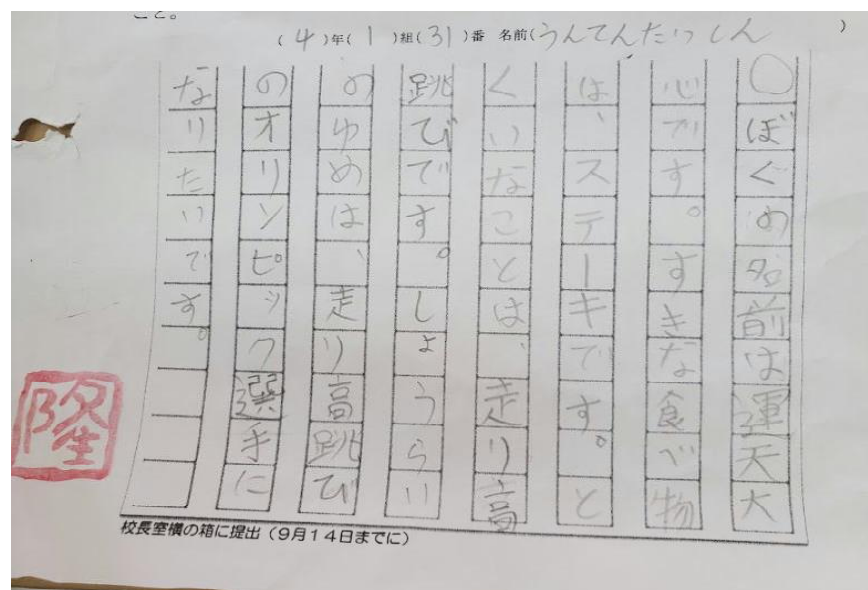 こと。
(4)年(1)組(31)番 名前(うんてんたいしん)
○ぼくの名前は運天大
心です。すきな食べ物
は、ステーキです。と
くいなことは、走り高
跳びです。しょうらい
のゆめは、走り高跳び
のオリンピック選手に
なりたいです。
隆
校長室横の箱に提出(9月14日までに)